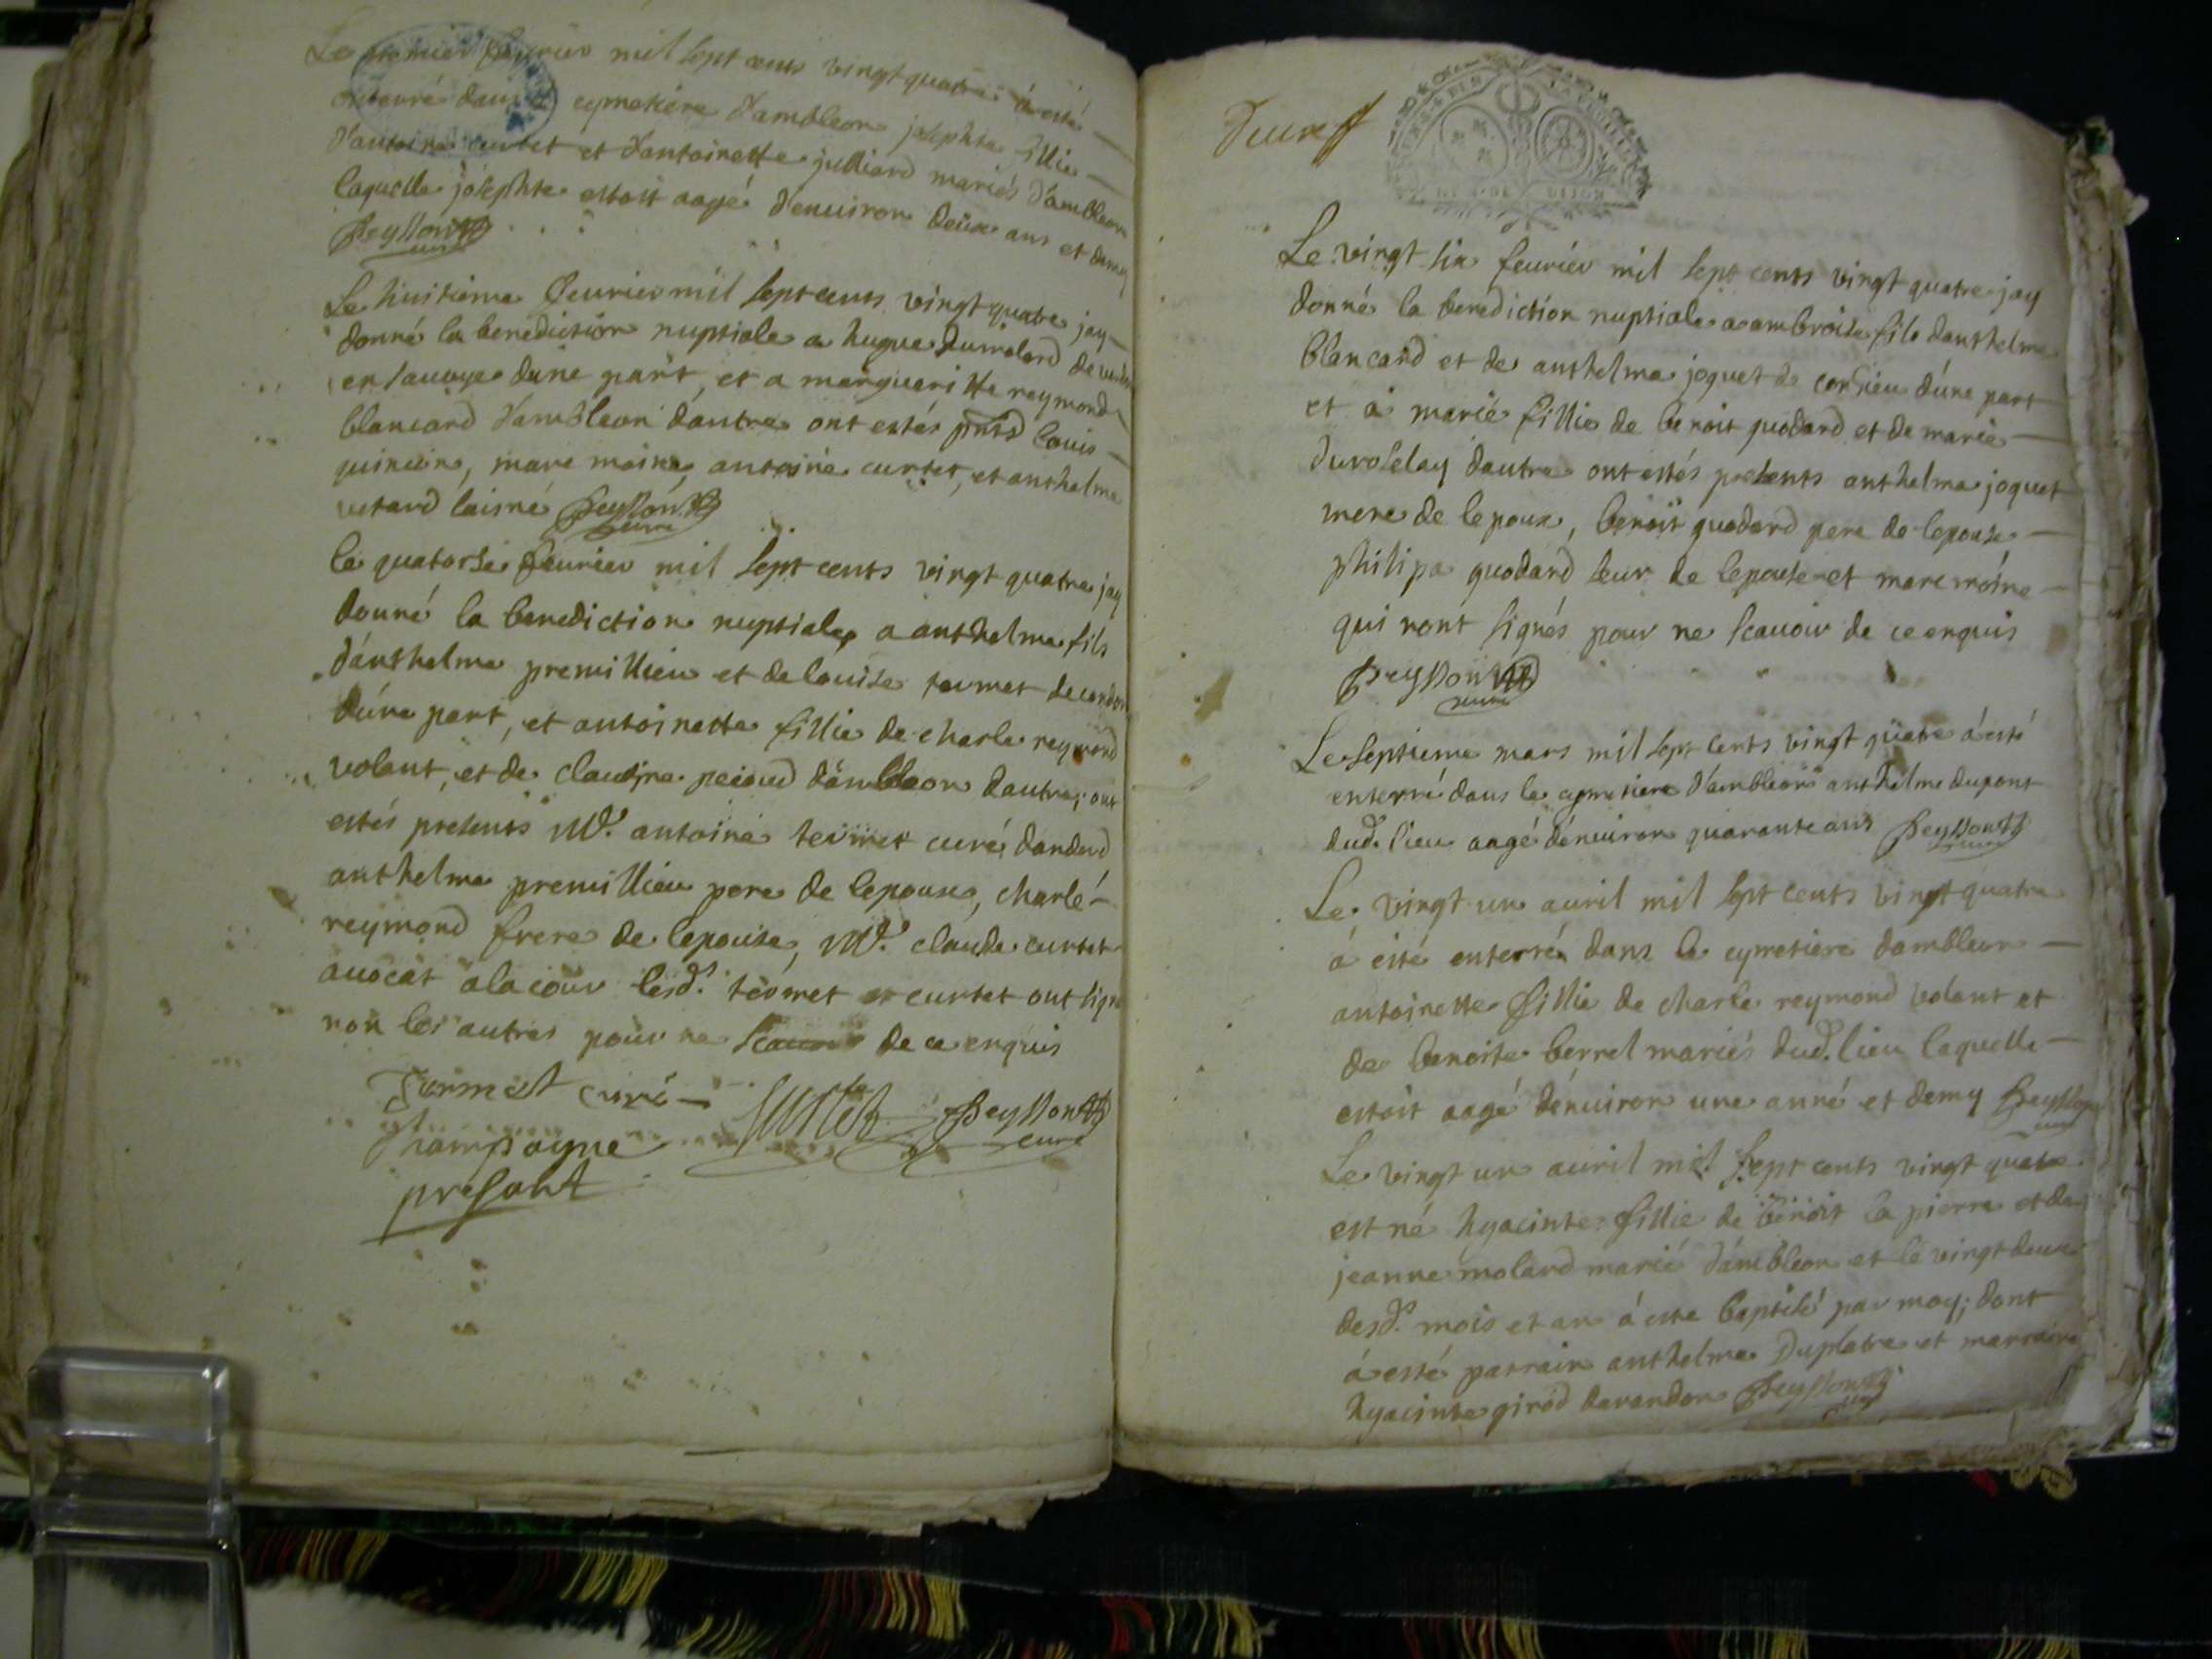 Le premier feurier mil sept cents vingt quatre à esté
enterré dans le cymetiere d'ambleon josephte fillie
d'antoine curtet et d'antoinette julliard mariés d'ambleon
laquelle josephte estoit aagé d'enuiron deux ans et demy
Peysson curé
Le huitieme feurier mil sept cents vingt quatre jay
donné la benediction nuptiale a hugue dumolard de
en sauoye dune part, et a margueritte reymond
blancard d'ambleon dautre ont estés pnts louis
quinson, marc moine, antoine curtet, et anthelme
vetard laisné Peysson curé
le quatorse feurier mil sept cents vingt quatre jay
donné la benediction nuptiale a anthelme fils
d'anthelme premillieu et de louise termet de condon
d'une part, et antoinette fillie de charle reymond
volant, et de claudine peioud d'ambleon dautre; ont
estés presents Mr. antoine termet curé dandert
anthelme premillieu pere de lepoux, charle
reymond frere de lepouse, Mr. claude curtet
auocat a la cour lesd. termet et curtet ont signé
non les autres pour ne scauoir de ce enquis
Termet curé
Champagne
présant
Curtet Peysson curé
Deux s
GENER. DE DIJON
Le vingt six feurier mil sept cents vingt quatre jay
donné la benediction nuptiale a ambroise fils danthelme
blancard et de anthelma joquet de consieu d'une part
et à marie fillie de benoit guodard et de marie
duroselay dautre ont estés presents anthelma joquet
mere de lepoux, benoit guodard pere de lepouse
philipa guodard seur de lepouse et marc moine
qui nont signés pour ne scauoir de ce enquis
Peysson curé
Le septieme mars mil sept cents vingt quatre à esté
enterré dans le cymetiere d'ambleon anthelme dupont
dud. lieu aagé d'enuiron quarante ans Peysson curé
Le vingt un auril mil sept cents vingt quatre
à esté enterré dans le cymetiere dambleon
antoinette fillie de charle reymond volant et
de benoite berrel mariés dud. lieu laquelle
estoit aagé d'enuiron une anné et demy Peysson curé
Le vingt un auril mil sept cents vingt quatre
est né hyacinte fillie de benoit la pierre et de
jeanne molard marié d'ambleon et le vingt deux
desd. mois et an à esté baptisé par moy; dont
à esté parrain anthelme Duplatre et marraine
hyacinte girod darandon Peysson curé